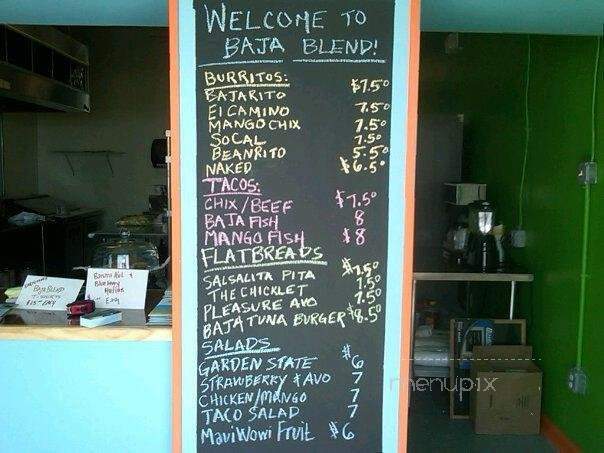 WELCOME TO
BAJA BLEND!
BURRITOS: $7.50
BAJARITO
El CAMINO 7.50
MANGO CHIX 7.50
SOCAL 7.50
BEANRITO 5.50
NAKED $6.50
TACOS:
CHIX/BEEF $7.50
BAJA FISH 8
MANGO FISH $8
FLATBREADS
SALSALITA PITA $7.50
THE CHICKLET 7.50
PLEASURE AVO 7.50
BAJA TUNA BURGER $8.50
SALADS
GARDEN STATE $6
STRAWBERRY + AVO 7
CHICKEN/MANGO 7
TACO SALAD 7
MauiWowi Fruit $6
BAJA BLEND
T-SHIRTS
$15 EACH
Banana Nut +
Blueberry
Muffins
Each
menupix